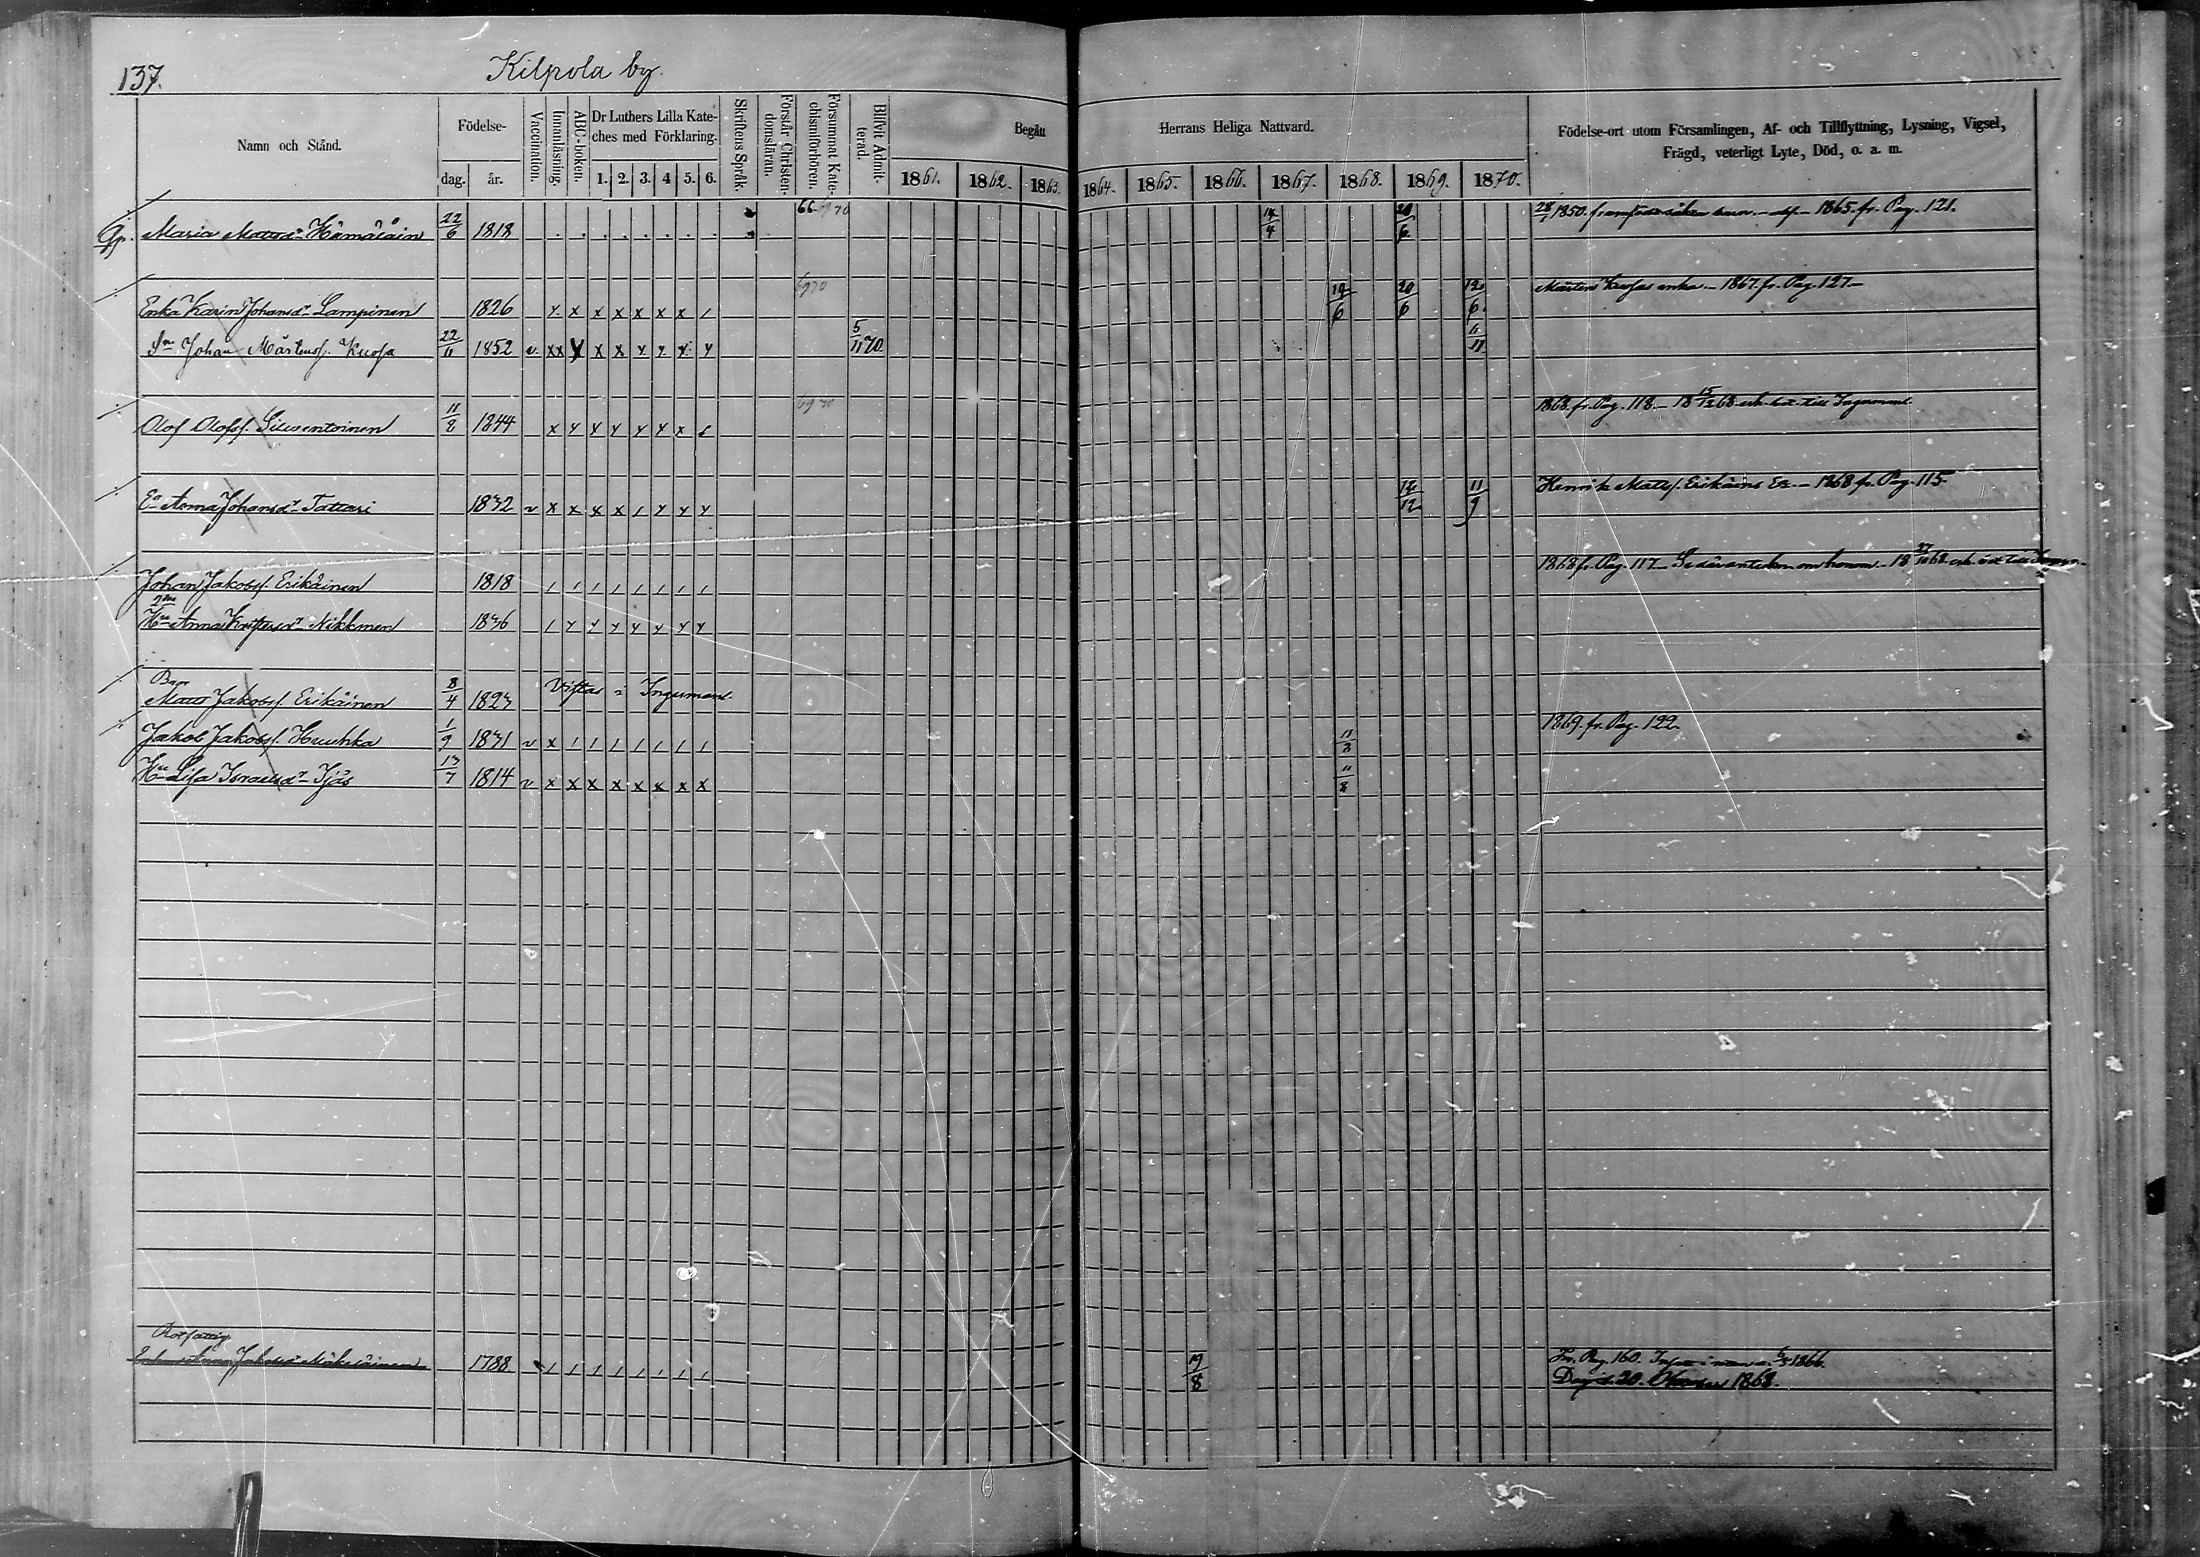 137.
Kilpola by.
Namn och Stånd.
Födelse-
dag. år.
Vaccination.
Innanläsning.
ABC-boken.
Dr Luthers Lilla Kate-
ches med Förklaring.
1. 2. 3. 4 5. 6.
Skriftens Språk.
Förstår Christen-
domsläran.
Försummat Kate-
chismiförhören.
Blifvit Admit-
terad.
Begått
Herrans Heliga Nattvard.
1861. 1862. 1863. 1864. 1865. 1866. 1867. 1868. 1869. 1870.
Födelse-ort utom Församlingen, Af- och Tillflyttning, Lysning, Vigsel,
Frägd, veterligt Lyte, Död, o. a. m.
Maria Mattsdr Hämäläin 22/6 1818 66 69 70 14/4 20/6 1850. 1865. fr. Pag. 121.
Enka Karin Johansdr Lampinen 1826 69 70 19/6 20/6 12/6 Mårtens Kuosas enka. – 1867. fr. Pag. 127 –
Sn Johan Mårtenss. Kuosa 22/11 1852 v. 5/11 70. 6/11
Olof Olofss. Siusentoinen 11/8 1844 69 70 1868. fr. Pag. 118. – 18 15/12 68 till Ingermanl.
Ea Anna Johansdr Tattari 1832 v 12/12 11/9 Henrik Mattss. Erikäins Ea. – 1868 fr. Pag. 115.
Johan Jakobss. Erikäinen 1818 1868 fr. Pag. 117. – Se där anteckn. om honom. – 18 27/10 68.
Hu Anna Kristersdr Nikkinen 1836
Bror
Matts Jakobss. Erikäinen 8/4 1823 Vistas i Ingermanl.
Jakob Jakobss. Huuhka 1/9 1831 v 11/8 1869. fr. Pag. 122.
Hu Lisa Israelsdr Tjäs 13/7 1814 v 11/8
Rotfattig.
Anna Jakobsdr 1788 19/8 Fr. Pag. 160. 1866.
Död d. 20. 1868.